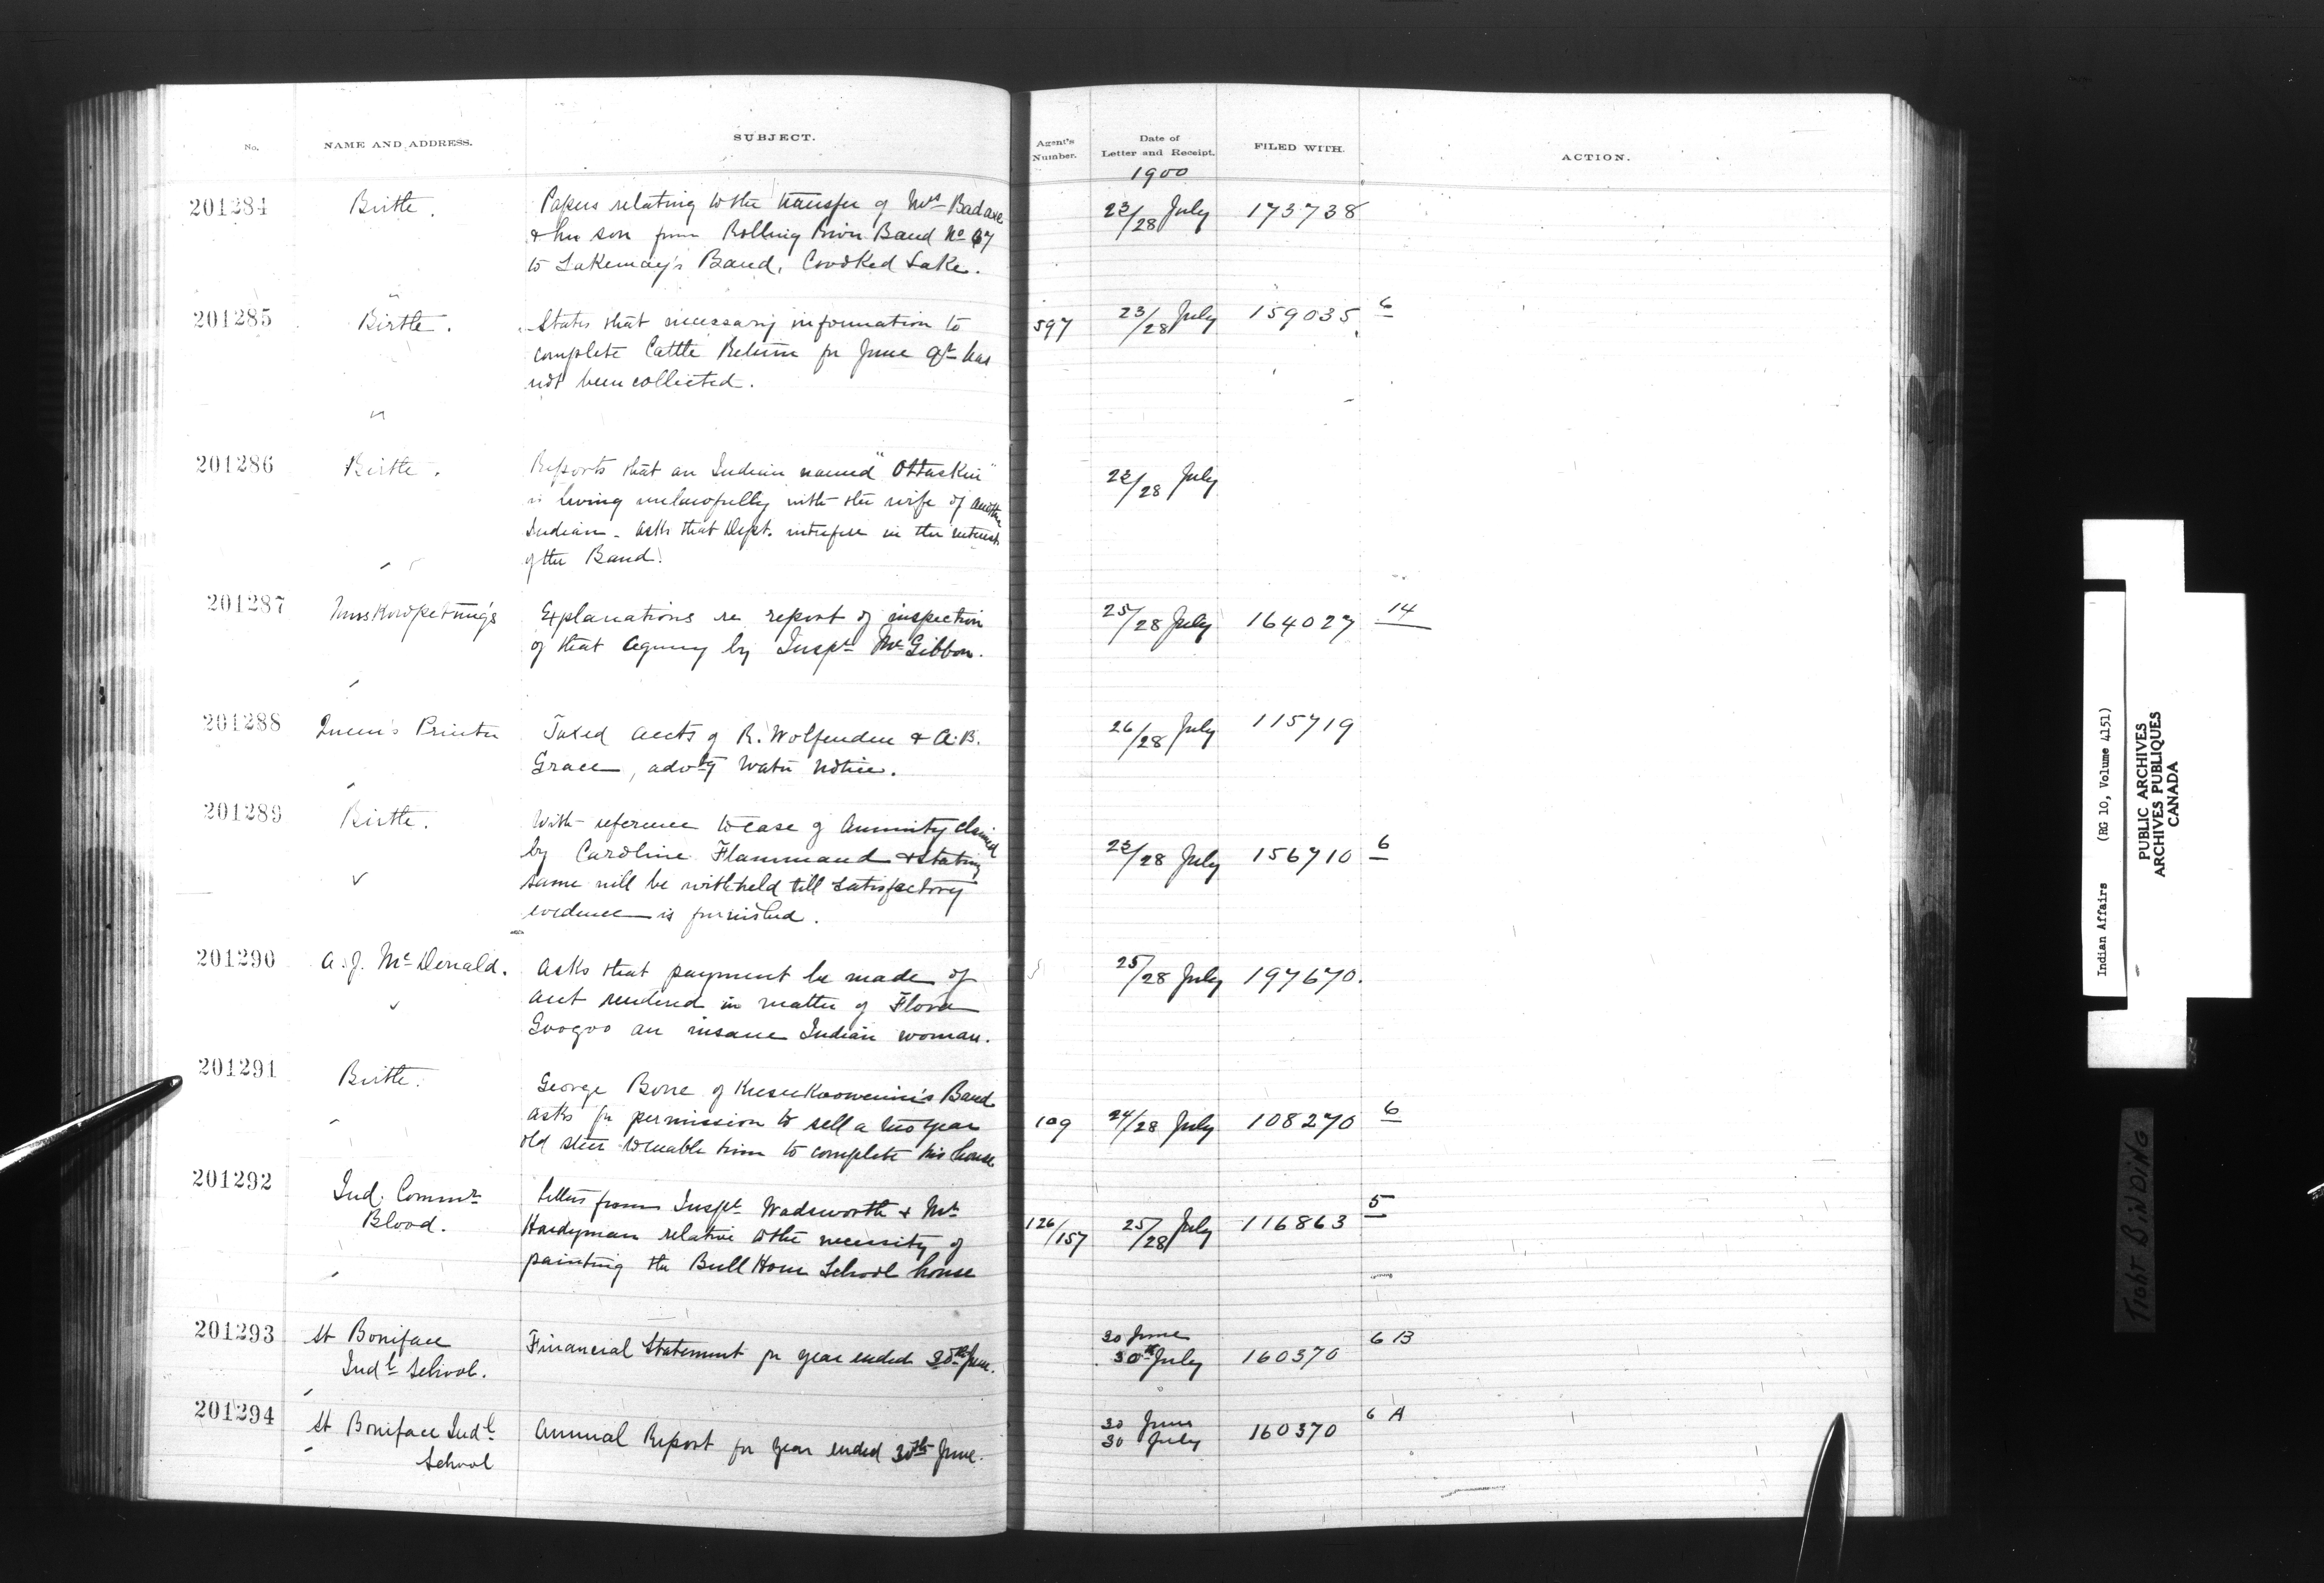 No. NAME AND ADDRESS. SUBJECT. Agent's Number. Date of Letter and Receipt. FILED WITH. ACTION.
1900
201284 Birtle. Papers relating to the transfer of Mrs Badaxe 23/28 July 173738
& her son from Rolling River Band No 67
to Sakemay's Band, Crooked Lake.
"
201285 Birtle. States that necessary information to 597 23/28 July 159035 6
complete Cattle Return for June Qr has
not been collected.
"
201286 Birtle. Reports that an Indian named "Ottaskin" 23/28 July
is living unlawfully with the wife of another
Indian - asks that Dept. interfere in the interest
of the Band.
201287 Muskowpetung's Explanations re report of inspection 25/28 July 164027 14
of that Agency by Inspr McGibbon.
201288 Queen's Printer Taxed accts of R. Wolfenden & A.B. 26/28 July 115719
Grace, advtg Water Notice.
201289 Birtle. With reference to case of annuity claimed
by Caroline Flammand & stating 23/28 July 156710 6
same will be withheld till satisfactory
evidence is furnished.
201290 A. J. McDonald. Asks that payment be made of 25/28 July 197670.
acct rendered in matter of Flora
Googoo an insane Indian woman.
201291 Birtle. George Bone of Keeseekoowenin's Band
asks for permission to sell a two year 109 24/28 July 108270 6
old steer to enable him to complete his house
201292 Ind. Commr Letters from Inspt Wadsworth & Mr 5
Blood. Hardyman relative to the necessity of 126/157 25/28 July 116863
painting the Bull Horn School house
201293 St Boniface Financial Statement for year ended 30th June. 30 June 6 B
Indl School. 30th July 160370
201294 St Boniface Indl Annual Report for year ended 30th June. 30 June 160370 6 A
School 30 July
Indian Affairs (RG 10, Volume 4151)
PUBLIC ARCHIVES
ARCHIVES PUBLIQUES
CANADA
TIGHT BINDING